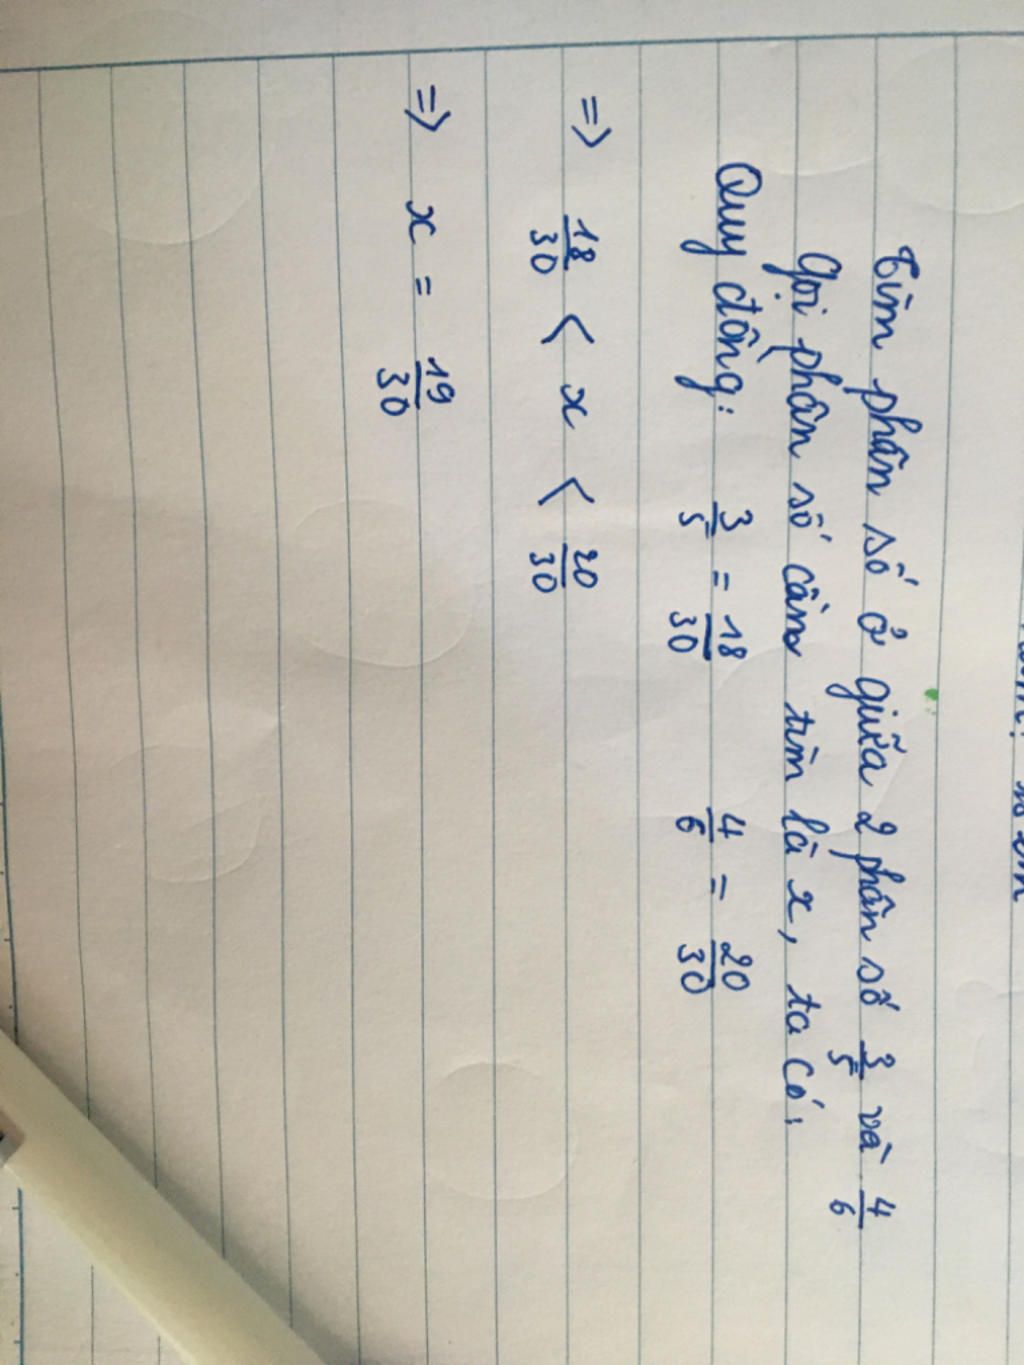 Tìm phân số ở giữa 2 phân số 3/5 và 4/6
Gọi phân số cần tìm là x, ta có:
Quy đồng: 3/5 = 18/30 4/6 = 20/30
=> 18/30 < x < 20/30
=> x = 19/30